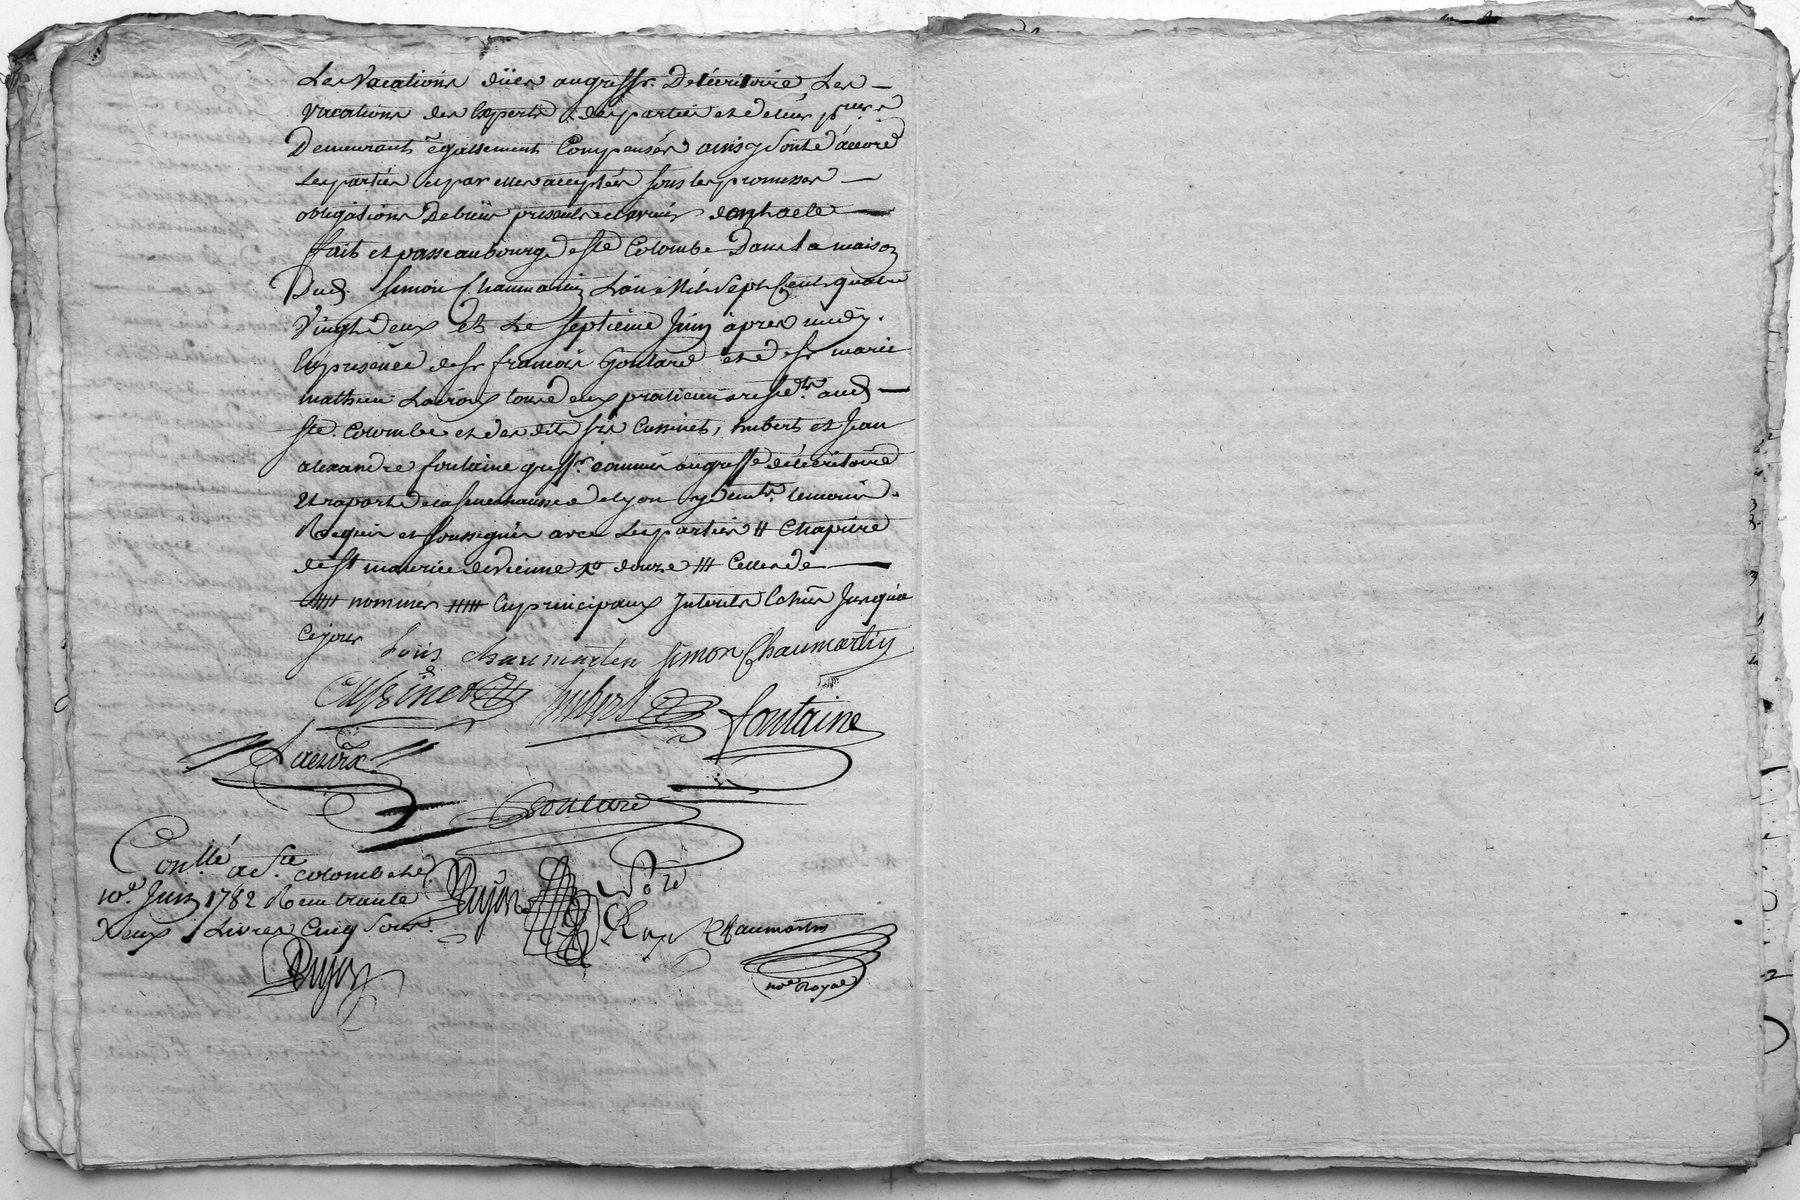 Les Vacations düer au greff.r De lécritoire, Les —
Vacations des Experts, des parties et de leur p.
Demeurants égallement Compensés ainsy Sont d'accord
Les parties et par elles acceptées sous les promesses —
obligations De biens presents et avenir dont acte —
ffait et passé au bourg de Ste Colombe Dans La maison
Dud. Simon Chaumartin L'an Mil Sept Cent quatre
Vingt deux et Le septieme Juin âpres midy.
En presence de Sr francois Goutard et de Sr marie
mathieu Lacroix tous deux praticiens resid.ts aud —
Ste. Colombe et des dits srs Cussinet, hubert et Jean
alexandre fontaine greff.r commis au greffe de l'écritoire
Et raports de la senechaussée de Lyon y dem.ts temoins.
Requis et soussignés avec Les parties # Chapitre
de St maurice de Vienne no douze ### Celles de —
#### nommes ##### En principaux Interets Echus Jusqu'a
Ce jour
Louis chaumarten Simon Chaumartin
Cussinet hubert
fontaine
Lacroix
Goutard
Con.llé a Ste. Colombe le
10.e Juin 1782 Reçu trante
Deux Livres Cinq Sous.
Dujon
Dujon
Chaumartin
no.re Royal